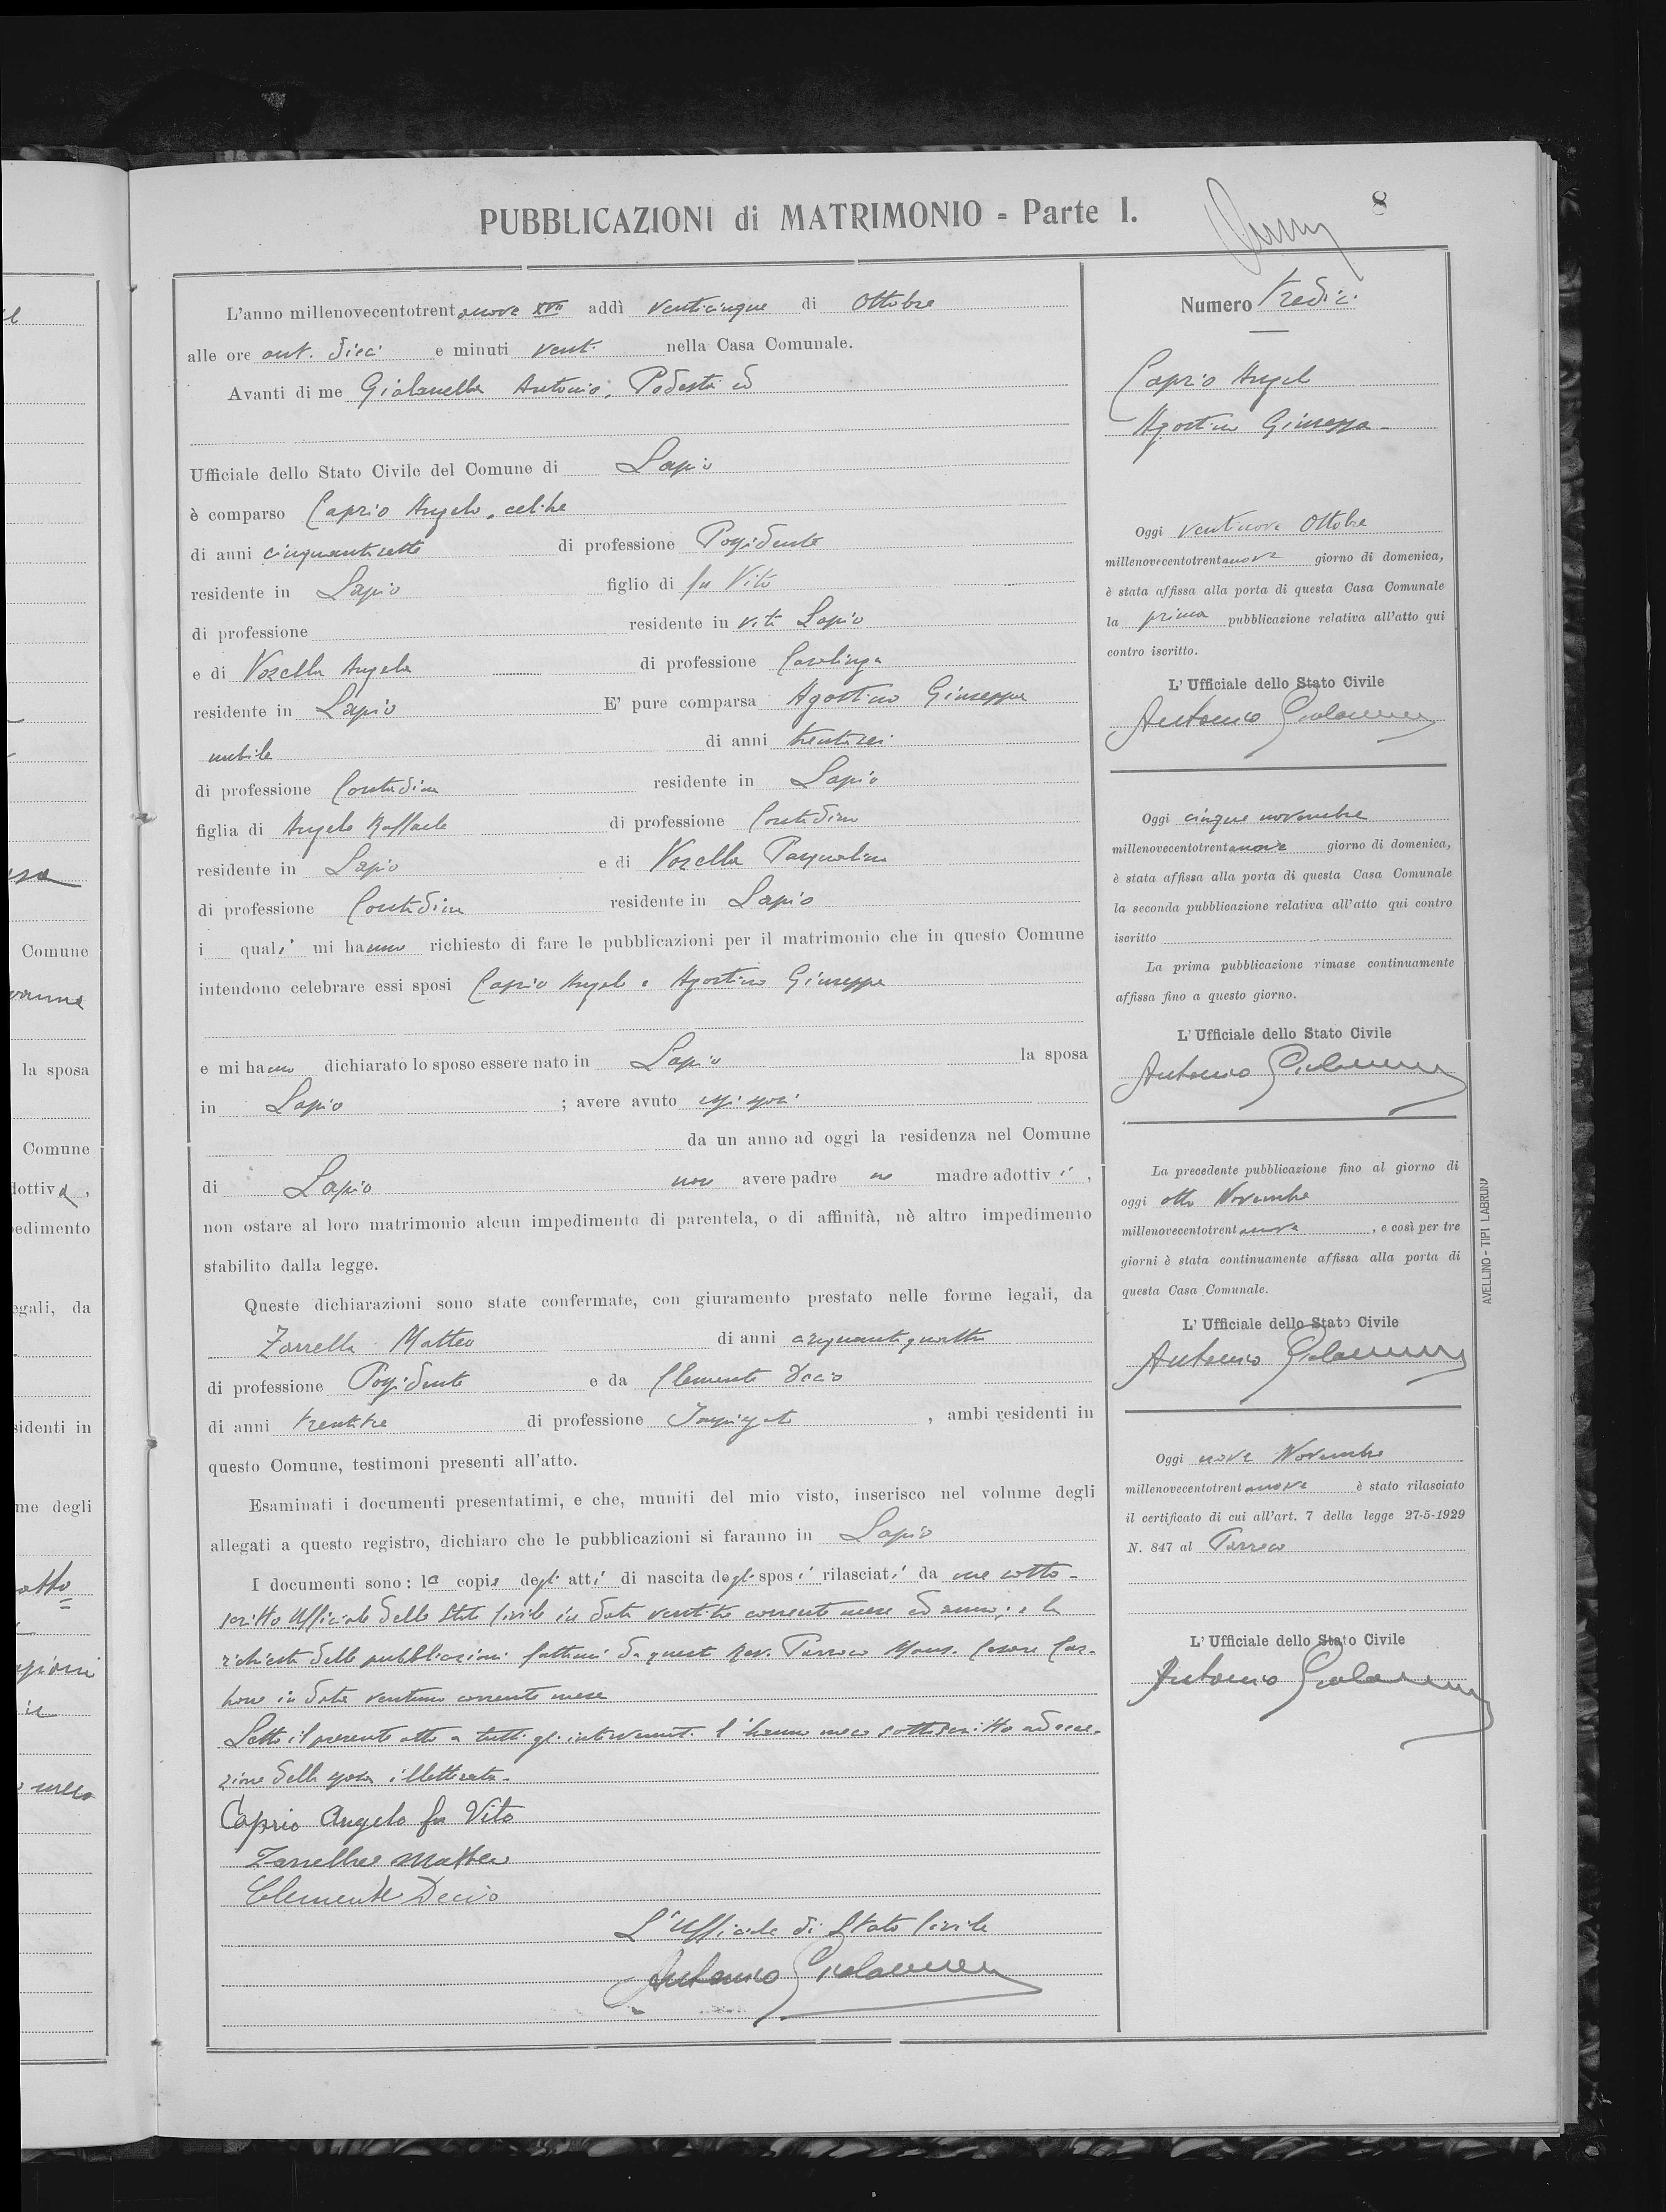 PUBBLICAZIONI di MATRIMONIO - Parte I.
8
L'anno millenovecentotrentanove XVII addì venticinque di Ottobre
alle ore ant. dieci e minuti venti nella Casa Comunale.
Avanti di me Giolanella Antonio, Podestà ed
Ufficiale dello Stato Civile del Comune di Lapio
è comparso Caprio Angelo, celibe
di anni cinquantasette di professione Possidente
residente in Lapio figlio di fu Vito
di professione residente in vita Lapio
e di Vozella Angela di professione Casalinga
residente in Lapio E' pure comparsa Agostino Giuseppa
nubile di anni trentasei
di professione Contadina residente in Lapio
figlia di Angelo Raffaele di professione Contadino
residente in Lapio e di Vozella Pasqualina
di professione Contadina residente in Lapio
i quali mi hanno richiesto di fare le pubblicazioni per il matrimonio che in questo Comune
intendono celebrare essi sposi Caprio Angelo e Agostino Giuseppa
e mi hanno dichiarato lo sposo essere nato in Lapio la sposa
in Lapio ; avere avuto essi sposi
da un anno ad oggi la residenza nel Comune
di Lapio non avere padre né madre adottivi,
non ostare al loro matrimonio alcun impedimento di parentela, o di affinità, nè altro impedimento
stabilito dalla legge.
Queste dichiarazioni sono state confermate, con giuramento prestato nelle forme legali, da
Zarrella Matteo di anni cinquantaquattro
di professione Possidente e da Clemente Decio
di anni trentatre di professione Impiegato, ambi residenti in
questo Comune, testimoni presenti all'atto.
Esaminati i documenti presentatimi, e che, muniti del mio visto, inserisco nel volume degli
allegati a questo registro, dichiaro che le pubblicazioni si faranno in Lapio
I documenti sono: le copie degli atti di nascita degli sposi rilasciati da me sotto-
scritto Ufficiale dello Stato Civile in data ventitre corrente mese ed anno; e la
richiesta delle pubblicazioni fattami da questo Rev. Parroco Mons. Cesare Car-
bone in data ventuno corrente mese
Letto il presente atto a tutti gl'intervenuti l'hanno meco sottoscritto ad ecce-
zione della sposa illetterata.
Caprio Angelo fu Vito
Zarrella Matteo
Clemente Decio
L'Ufficiale di Stato Civile
Antonio Giolanella
Numero tredici
Caprio Angelo
Agostino Giuseppa
Oggi ventinove Ottobre
millenovecentotrentanove giorno di domenica,
è stata affissa alla porta di questa Casa Comunale
la prima pubblicazione relativa all'atto qui
contro iscritto.
L'Ufficiale dello Stato Civile
Antonio Giolanella
Oggi cinque novembre
millenovecentotrentanove giorno di domenica,
è stata affissa alla porta di questa Casa Comunale
la seconda pubblicazione relativa all'atto qui contro
iscritto
La prima pubblicazione rimase continuamente
affissa fino a questo giorno.
L'Ufficiale dello Stato Civile
Antonio Giolanella
La precedente pubblicazione fino al giorno di
oggi otto Novembre
millenovecentotrentanove, e così per tre
giorni è stata continuamente affissa alla porta di
questa Casa Comunale.
L'Ufficiale dello Stato Civile
Antonio Giolanella
Oggi nove Novembre
millenovecentotrentanove è stato rilasciato
il certificato di cui all'art. 7 della legge 27-5-1929
N. 847 al Parroco
L'Ufficiale dello Stato Civile
Antonio Giolanella
AVELLINO - TIPI LABRUNA
Comune
la sposa
Comune
egali, da
sidenti in
me degli